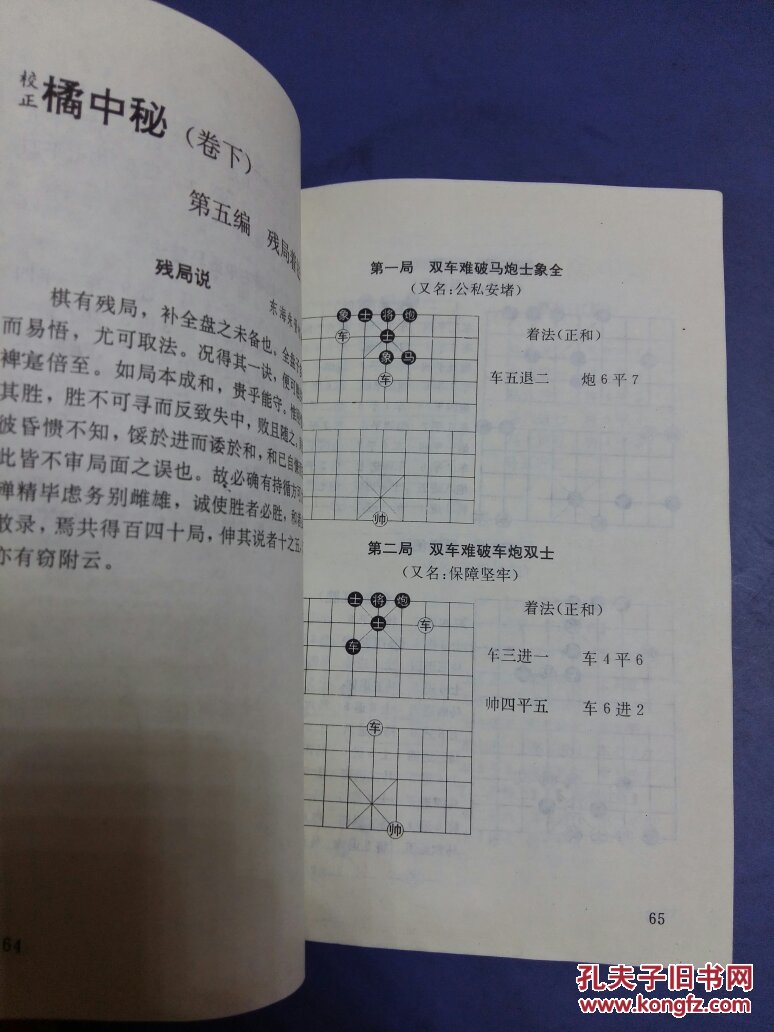 校正 橘中秘（卷下）
第五编 残局
残局说
东海
棋有残局，补全盘之未备也。全盘
而易悟，尤可取法。况得其一诀，便可
裨寔倍至。如局本成和，贵乎能守。
其胜，胜不可寻而反致失中，败且随之，
彼昏愦不知，馁於进而诿於和，和已自
此皆不审局面之误也。故必确有持循方可
殚精毕虑务别雌雄，诚使胜者必胜，和
收录，焉共得百四十局，伸其说者十之五
亦有窃附云。
64
第一局 双车难破马炮士象全
（又名：公私安堵）
象 士 将 炮
车 士
象 马
车
帅
着法（正和）
车五退二 炮6平7
第二局 双车难破车炮双士
（又名：保障坚牢）
士 将 炮
士 车
车
车
帅
着法（正和）
车三进一 车4平6
帅四平五 车6进2
65
孔夫子旧书网
kongfz.com